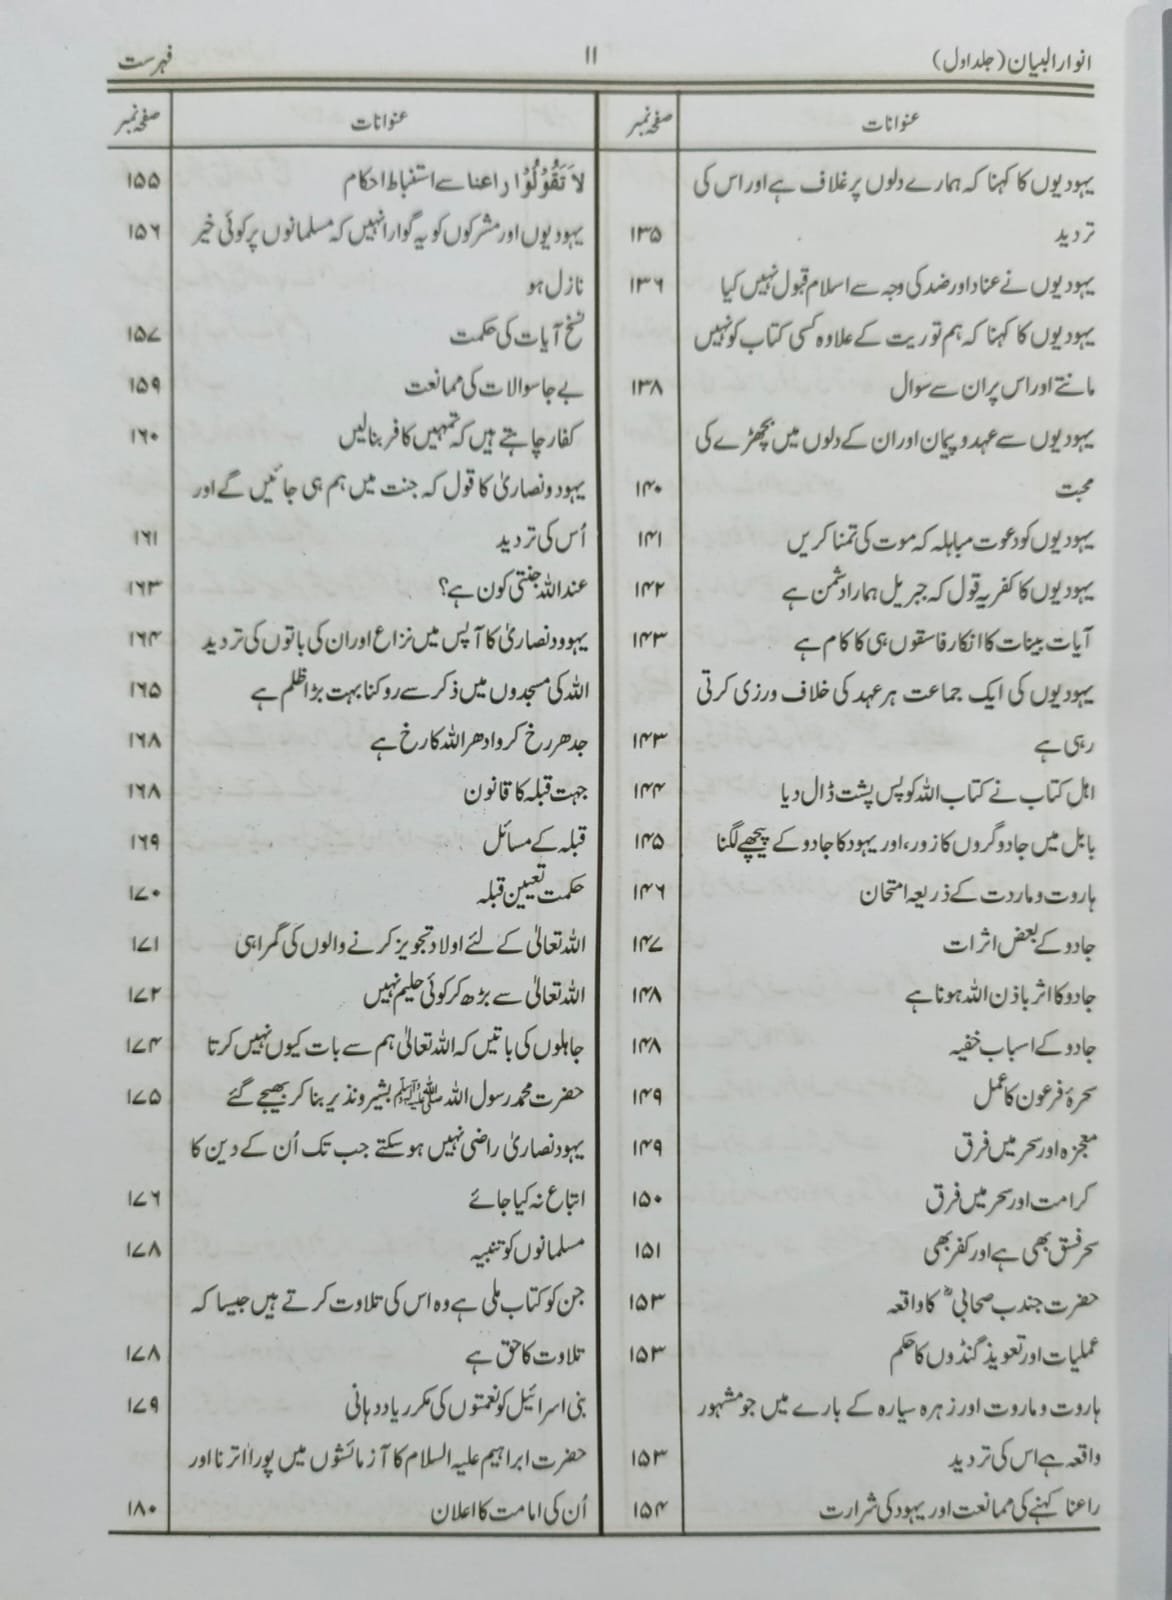 انوار البیان (جلد اول)
۱۱
فہرست
عنوانات
صفحہ نمبر
یہودیوں کا کہنا کہ ہمارے دلوں پر غلاف ہے اور اس کی
تردید ۱۳۵
یہودیوں نے عناد اور ضد کی وجہ سے اسلام قبول نہیں کیا ۱۳۶
یہودیوں کا کہنا کہ ہم توریت کے علاوہ کسی کتاب کو نہیں
مانتے اور اس پر ان سے سوال ۱۳۸
یہودیوں سے عہد و پیمان اور ان کے دلوں میں بچھڑے کی
محبت ۱۴۰
یہودیوں کو دعوت مباہلہ کہ موت کی تمنا کریں ۱۴۱
یہودیوں کا کفریہ قول کہ جبریل ہمارا دشمن ہے ۱۴۲
آیات بینات کا انکار فاسقوں ہی کا کام ہے ۱۴۳
یہودیوں کی ایک جماعت ہر عہد کی خلاف ورزی کرتی
رہی ہے ۱۴۳
اہل کتاب نے کتاب اللہ کو پس پشت ڈال دیا ۱۴۴
بابل میں جادوگروں کا زور، اور یہود کا جادو کے پیچھے لگنا ۱۴۵
ہاروت و ماردت کے ذریعہ امتحان ۱۴۶
جادو کے بعض اثرات ۱۴۷
جادو کا اثر باذن اللہ ہونا ہے ۱۴۸
جادو کے اسباب خفیہ ۱۴۸
سحرۂ فرعون کا عمل ۱۴۹
معجزہ اور سحر میں فرق ۱۴۹
کرامت اور سحر میں فرق ۱۵۰
سحر فسق بھی ہے اور کفر بھی ۱۵۱
حضرت جندب صحابیؓ کا واقعہ ۱۵۳
عملیات اور تعویذ گنڈوں کا حکم ۱۵۳
ہاروت و ماروت اور زہرہ سیارہ کے بارے میں جو مشہور
واقعہ ہے اس کی تردید ۱۵۳
راعنا کہنے کی ممانعت اور یہود کی شرارت ۱۵۴
عنوانات
صفحہ نمبر
لَا تَقُوْلُوْا راعنا سے استنباط احکام ۱۵۵
یہودیوں اور مشرکوں کو یہ گوارا نہیں کہ مسلمانوں پر کوئی خیر ۱۵۶
نازل ہو
نسخ آیات کی حکمت ۱۵۷
بے جا سوالات کی ممانعت ۱۵۹
کفار چاہتے ہیں کہ تمہیں کافر بنالیں ۱۶۰
یہود و نصاریٰ کا قول کہ جنت میں ہم ہی جائیں گے اور
اُس کی تردید ۱۶۱
عند اللہ جنتی کون ہے؟ ۱۶۳
یہوود نصاریٰ کا آپس میں نزاع اور ان کی باتوں کی تردید ۱۶۴
اللہ کی مسجدوں میں ذکر سے روکنا بہت بڑا ظلم ہے ۱۶۵
جدھر رخ کرو ادھر اللہ کا رخ ہے ۱۶۸
جہت قبلہ کا قانون ۱۶۸
قبلہ کے مسائل ۱۶۹
حکمت تعیین قبلہ ۱۷۰
اللہ تعالیٰ کے لئے اولاد تجویز کرنے والوں کی گمراہی ۱۷۱
اللہ تعالیٰ سے بڑھ کر کوئی حلیم نہیں ۱۷۲
جاہلوں کی باتیں کہ اللہ تعالیٰ ہم سے بات کیوں نہیں کرتا ۱۷۴
حضرت محمد رسول اللہ ﷺ بشیر و نذیر بنا کر بھیجے گئے ۱۷۵
یہود نصاریٰ راضی نہیں ہو سکتے جب تک اُن کے دین کا
اتباع نہ کیا جائے ۱۷۶
مسلمانوں کو تنبیہ ۱۷۸
جن کو کتاب ملی ہے وہ اس کی تلاوت کرتے ہیں جیسا کہ
تلاوت کا حق ہے ۱۷۸
بنی اسرائیل کو نعمتوں کی مکرر یاد دہانی ۱۷۹
حضرت ابراہیم علیہ السلام کا آزمائشوں میں پورا اترنا اور
اُن کی امامت کا اعلان ۱۸۰